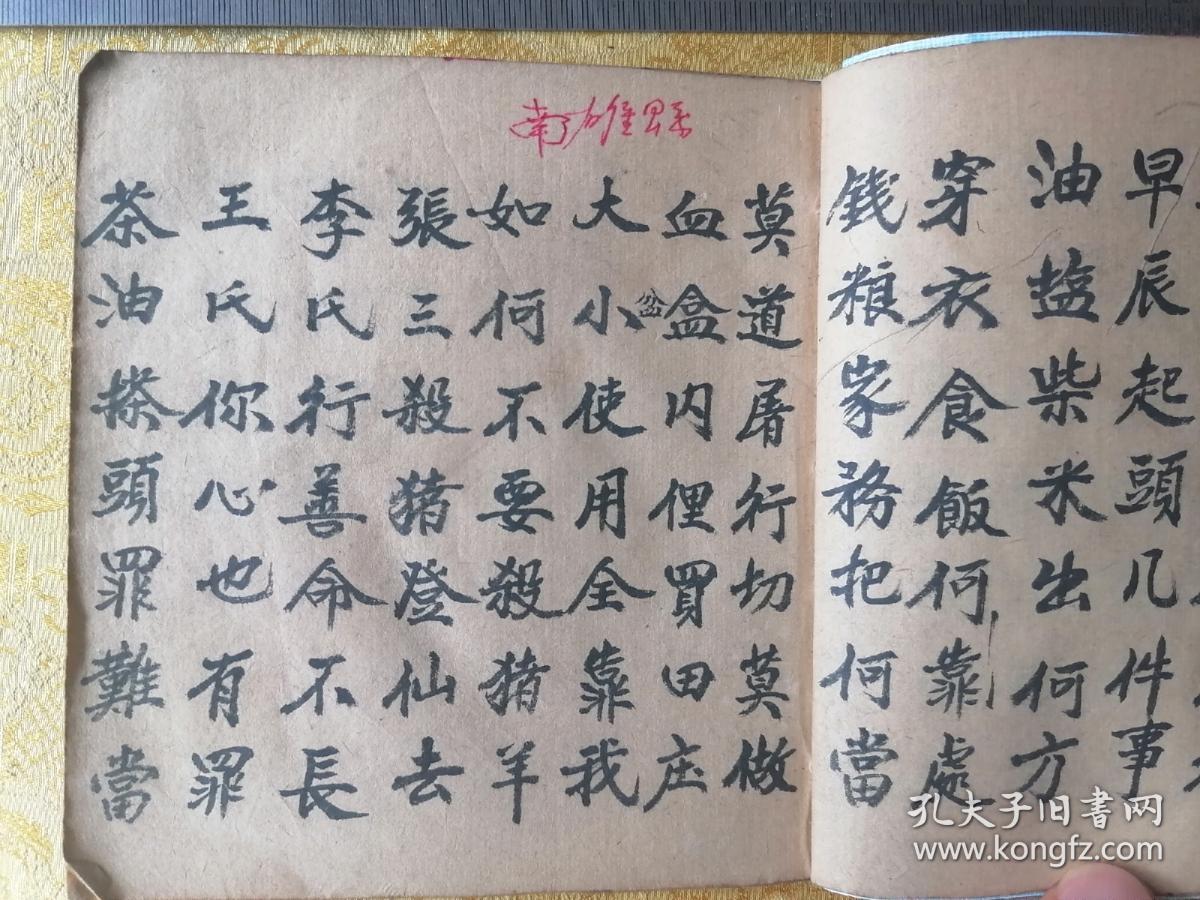 早辰起頭几件事
油塩柴米出何方
穿衣食飯何靠處
銭粮家務把何當
南雄县
莫道屠行切莫做
血盒内俚買田庄
盆
大小使用全靠我
如何不要殺猪羊
張三殺猪登仙去
李氏行善命不長
王氏你心也有罪
茶油搽頭罪難當
孔夫子旧书网
www.kongfz.com